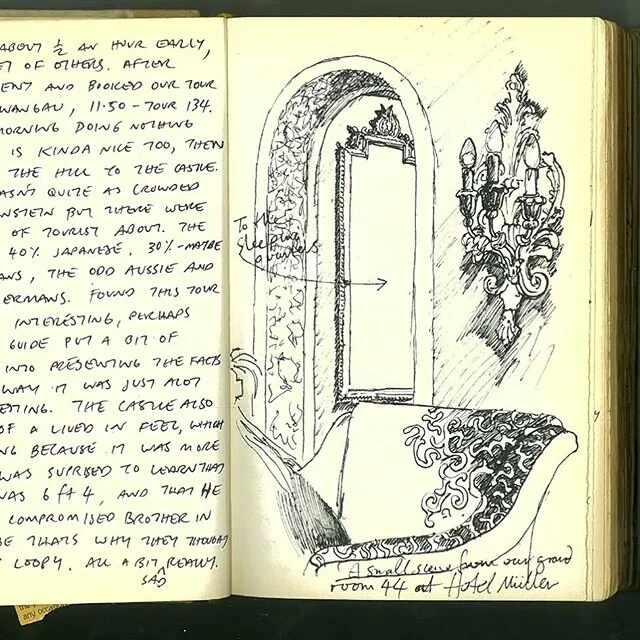 ABOUT ½ AN HOUR EARLY,
ET OF OTHERS. AFTER
ENT AND BOOKED OUR TOUR
WANGAU, 11.50 - TOUR 134.
MORNING DOING NOTHING
IS KINDA NICE TOO, THEN
THE HILL TO THE CASTLE.
ASN'T QUITE AS CROWDED
NSTEIN BUT THERE WERE
OF TOURIST ABOUT. THE
40% JAPANESE, 30% - MAYBE
ANS, THE ODD AUSSIE AND
ERMANS. FOUND THIS TOUR
INTERESTING, PERHAPS
GUIDE PUT A BIT OF
INTO PRESENTING THE FACTS
WAY IT WAS JUST ALOT
ESTING. THE CASTLE ALSO
OF A LIVED IN FEEL, WHICH
NG BECAUSE IT WAS MORE
WAS SUPRISED TO LEARN THAT
WAS 6 ft 4, AND THAT HE
COMPROMISED BROTHER IN
BE THATS WHY THEY THOUGHT
LOOPY. ALL A BIT REALLY.
SAD
To the
sleeping
quarters
A small scene from our grand
room 44 at Hotel Müller
any occasi